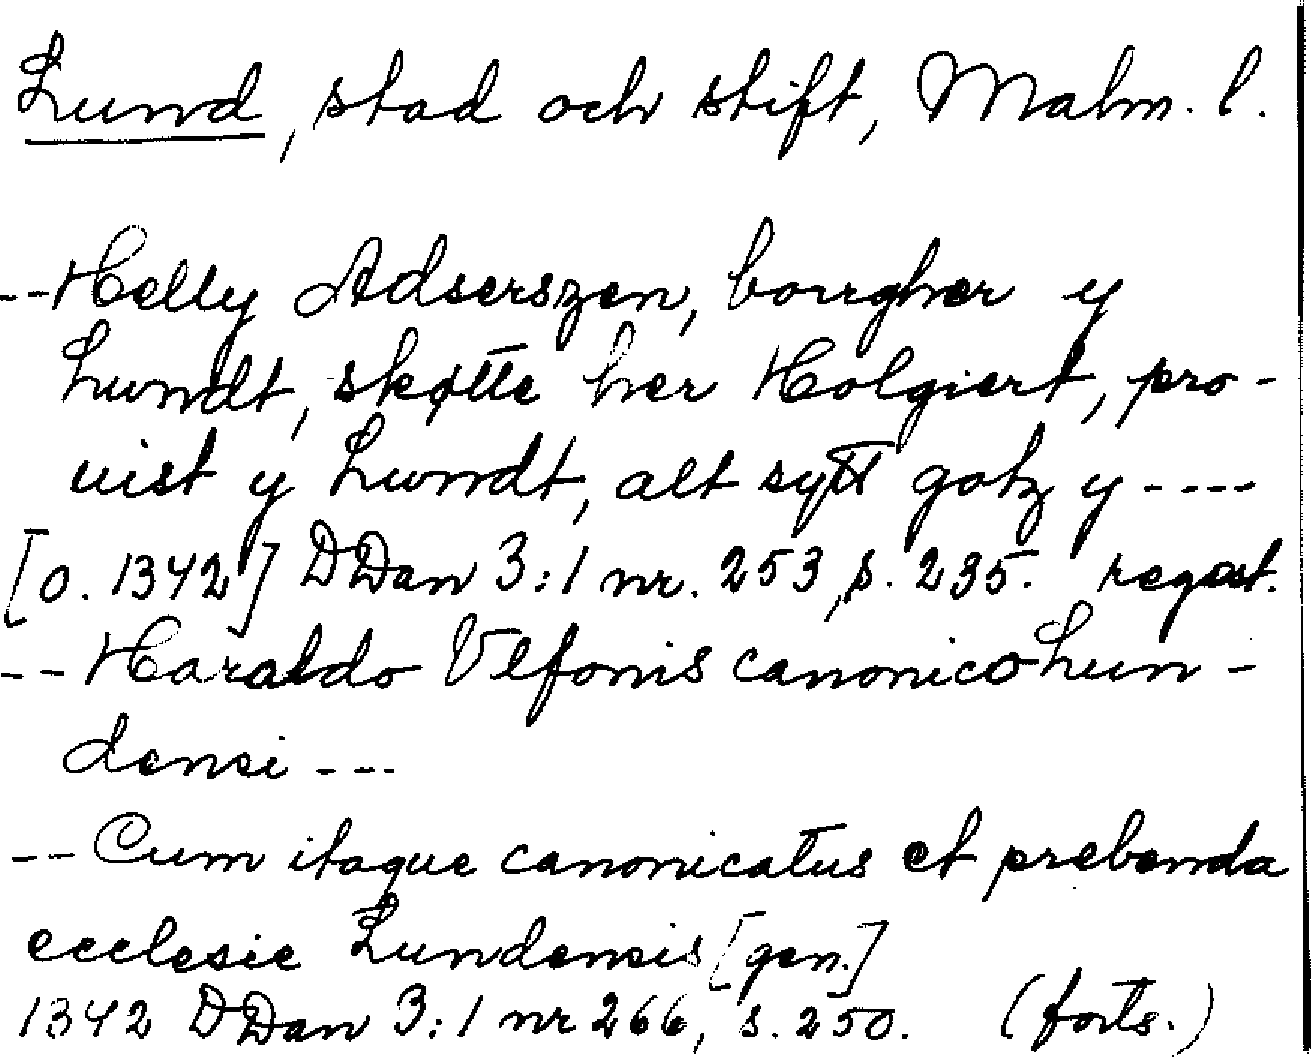 Lund, stad och stift, Malm. l.
--Helly Adserszen, borrgher y
Lundt, skøtte her Holgiert, pro-
uist y Lundt, alt sytt gotz y ----
[o. 1342] DDan 3:1 nr. 253, s. 235. regest.
--Haraldo Vlfonis canonico Lun-
densi ---
--Cum itaque canonicatus et prebenda
ecclesie Lundensis [gen.]
1342 DDan 3:1 nr 266, s. 250. (forts.)